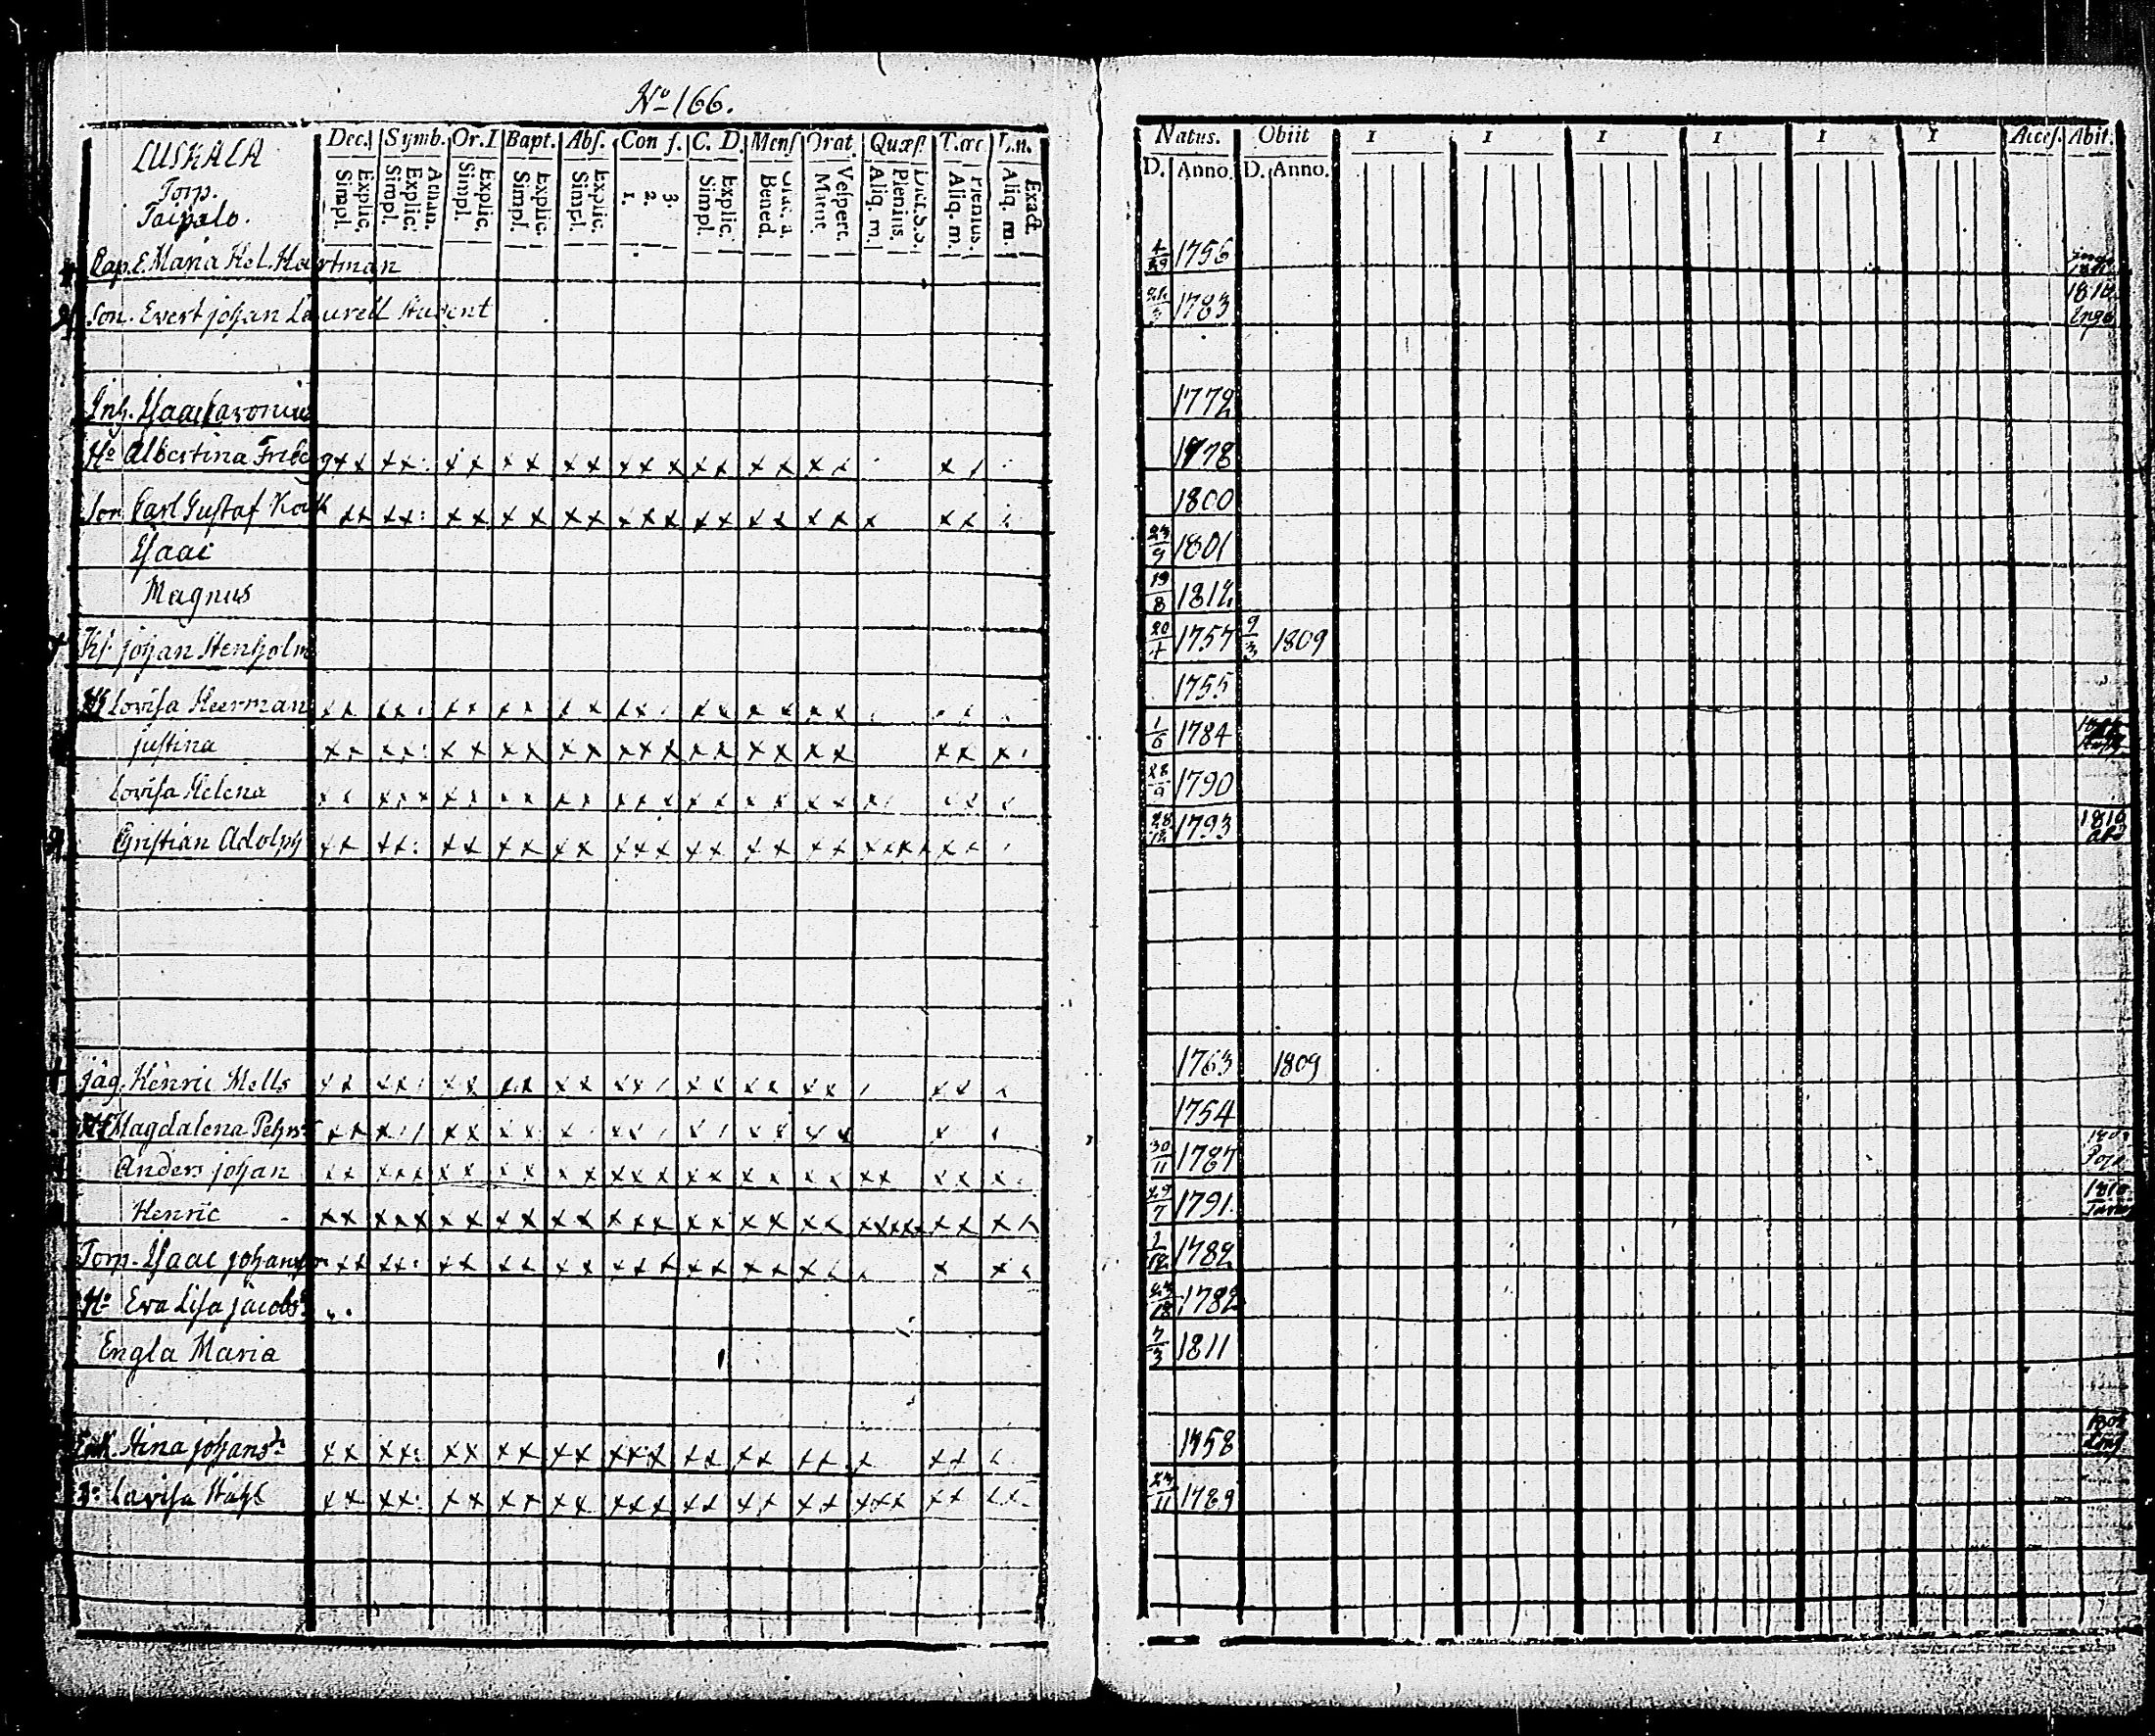 No 166.
LUSKALA
Torp.
Taipalo.
Dec. Symb. Or. I Bapt. Abs. Con f. C. D. Mens Orat. Quæst. T.œc. L.n.
Explic. Simpl. Explic. Simpl. Explic. Simpl. Explic. Simpl. Explic. Simpl. 3. 2. 1. Explic. Simpl. Bened. Vesperc. Matut. Plenius. Aliq. m. Plenius. Aliq. m. Exact. Aliq. m.
Natus. Obiit 1 1 1 1 1 1 Acces. Abit.
D. Anno. D. Anno.
Cap. E. Maria Hel. Hartman 4/29 1756
Son. Evert Johan Laurell Student 1783 1812 Inga
Inh. Isaac 1772
Ho Albertina Friberg xx xx: xx xx xx xxx xx xx xx 1778
Son Carl Gustaf xx xx: xx xx xx xxx xx xx xx x xx 1800
Isaac 23/9 1801
Magnus 19/8 1812
Johan Stenholm 20/4 1757 9/3 1809
Lovisa Heerman xx xx xx xx xx xx xx xx xx 1755
Justina xx xx: xx xx xx xxx xx xx xx xx x 1/6 1784
Lovisa Helena xx xxx xx xx xx xxx xx xx xx 28/9 1790
Christian Adolph xx xx: xx xx xx xxx xx xx xx xxxx xx 28/12 1793 1810 Abo
Jäg. Henric Mells xx xx xx xx xx xx xx xx xx xx 1763 1809
Magdalena Pehrs xx x xx xx x xx x xx xx x 1754
Anders Johan xx xxx xx xx xx xxx xx xx xx xx xx x 30/11 1787
Henric xx xxx xx xx xx xxx xx xx xx xxxx xx xx 29/7 1791 1810
Torp. Isaac Johansson xx xx: xx xx xx xxx xx xx xx x x 1782
Ho Eva Lisa Jacobs 1782
Engla Maria 7/3 1811
Enk. Stina Johansdr xx xx: xx xx xx xxx xx xx xx x xx 1758
Lovisa Ståhl xx xx: xx xx xx xxx xx xx xx xxx xx xx 1789